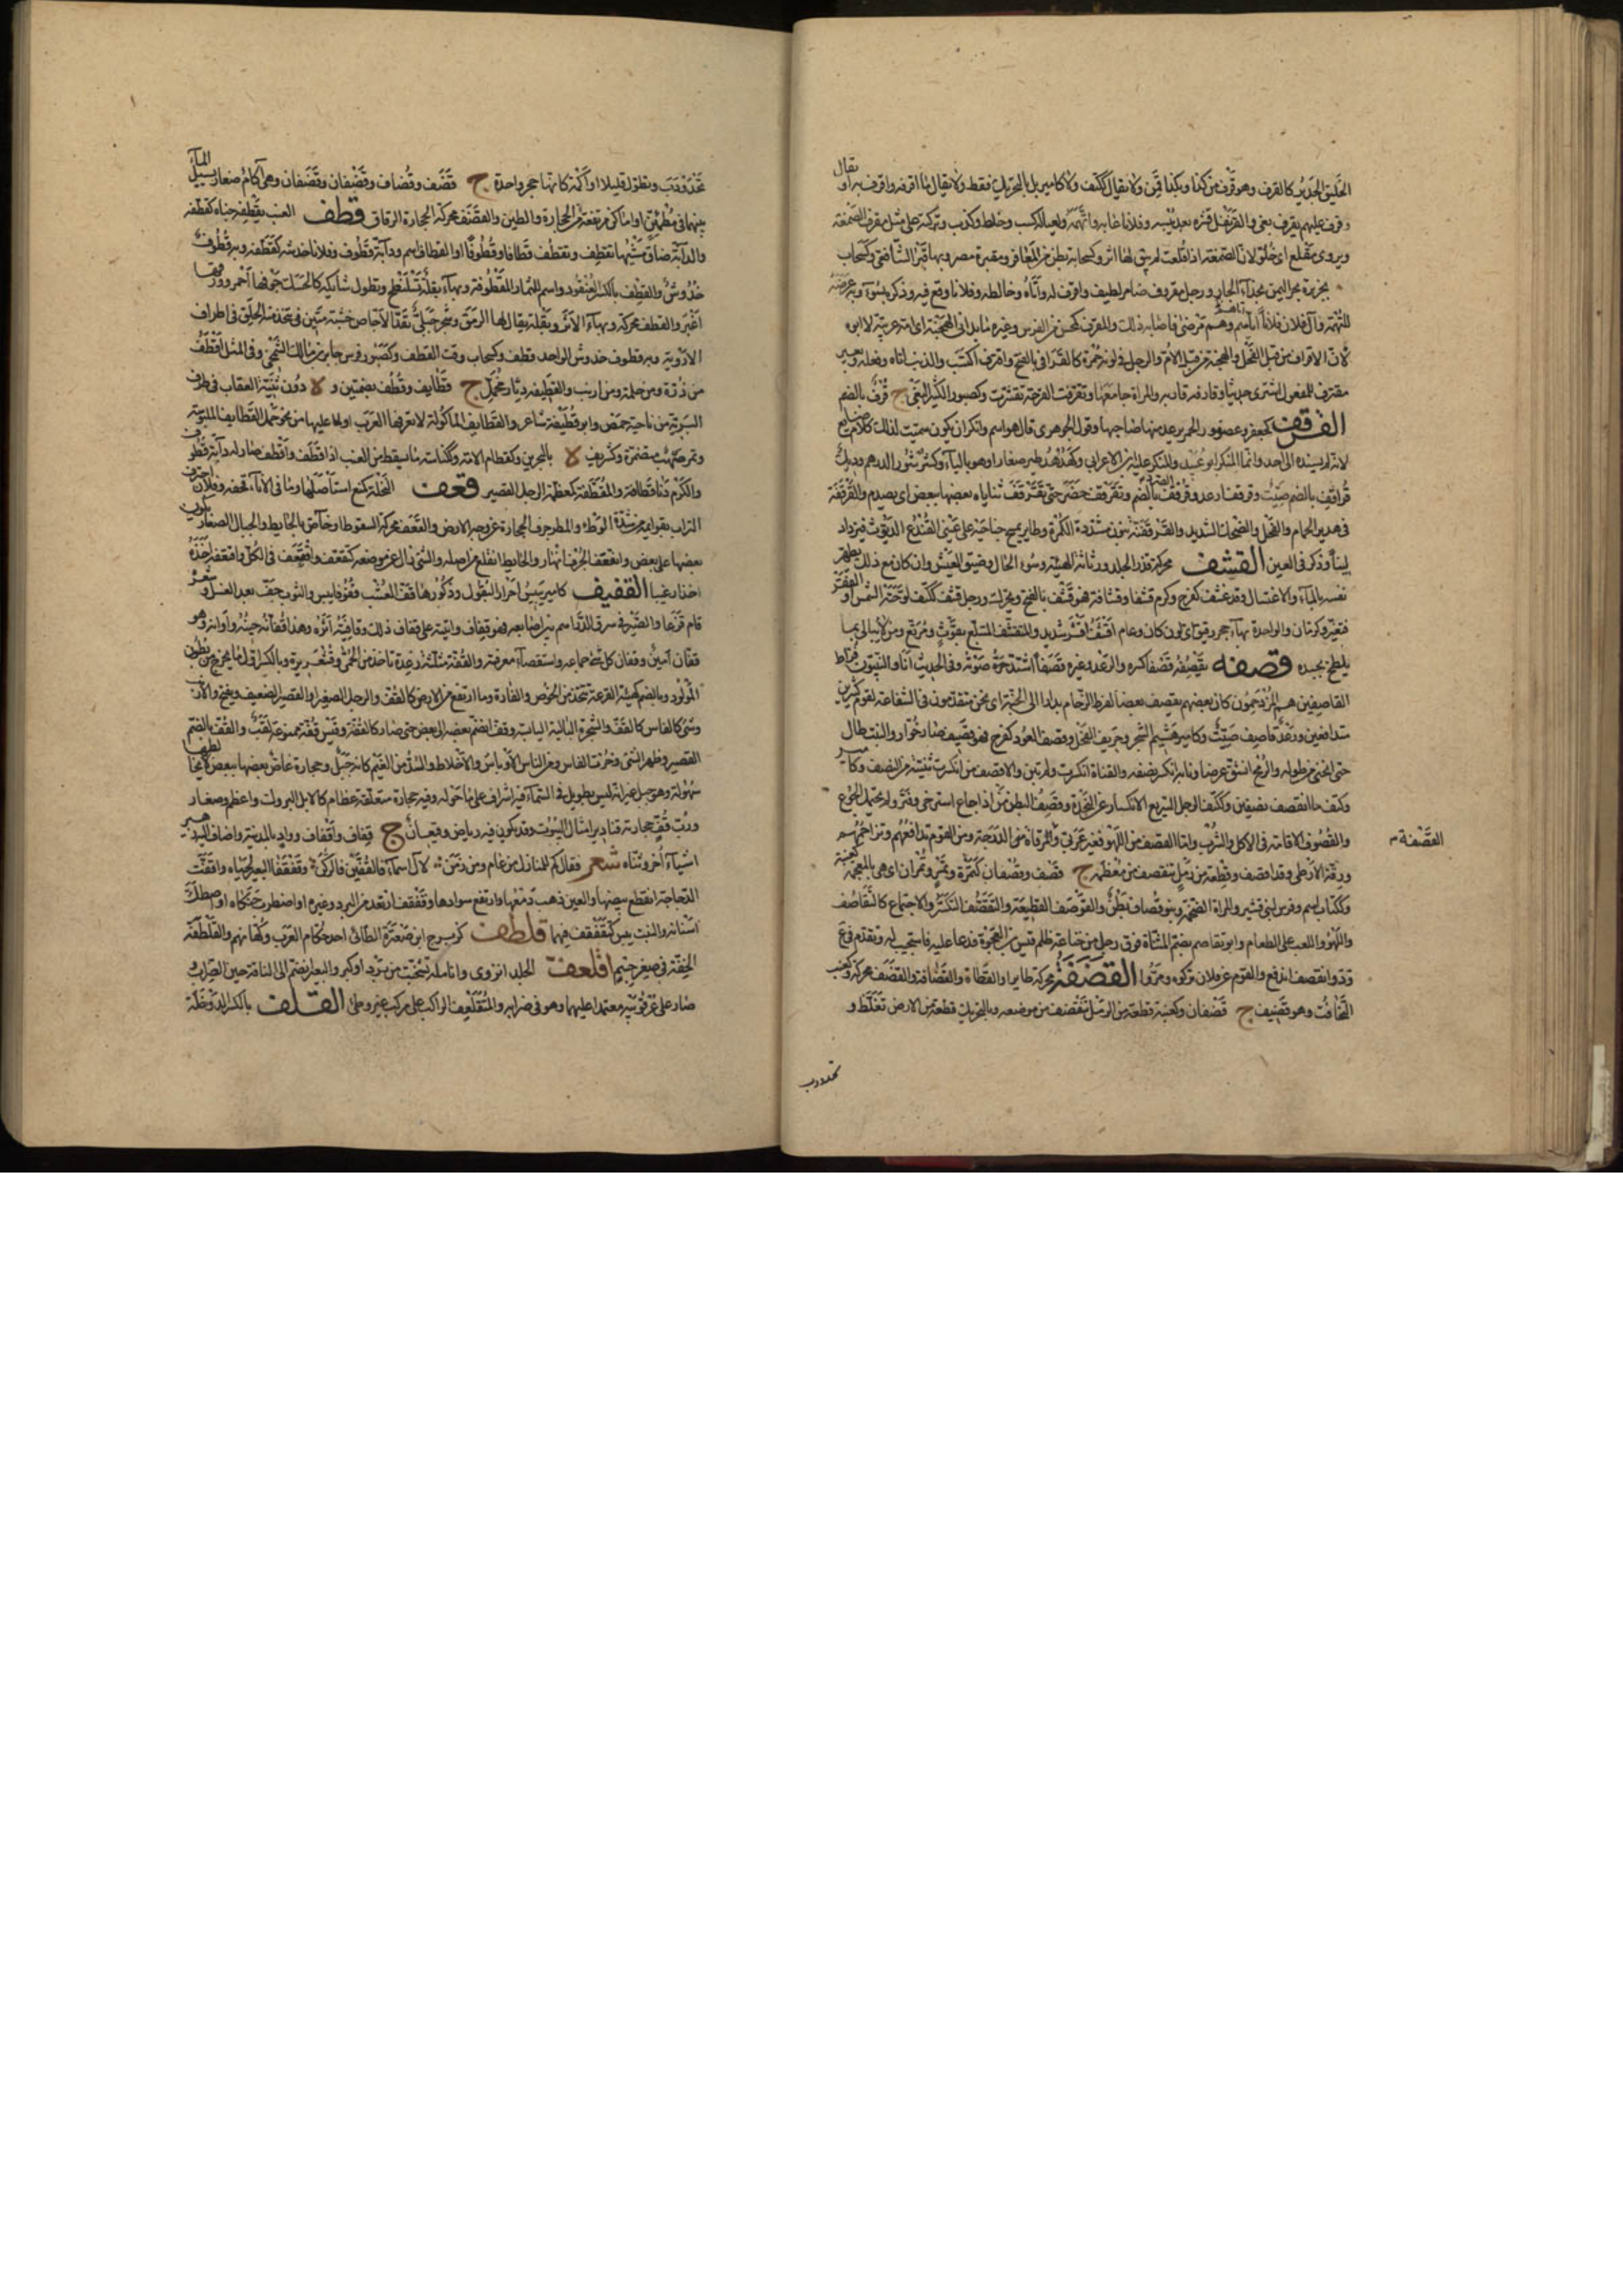 الخليق الجدير كالقرف وهو قرف من كذا وبكذا قمن ولا يقال ككتف ولا كامير بل بالتحريك فقط ولا يقال ما اقرفه واقرف به او يقال
وقرف عليهم يقرف بغى والقرنفل قشره بعد يبسه وفلانا عابه واتهمه ولعياله كسب وخلط وكذب وتركته على مثل مقرف الصمغة
ويروى مقلع اى خلو لان الصمغة اذا قلعت لم يبق لها اثر وكسحابة بطن من المعافر ومقبرة مصر وبها قبر الشافعي وكسحاب
بجزيرة بحر اليمن بحذاء الجار ورجل مقروف ضامر لطيف واقرف له داناه وخالطه وفلانا وقع فيه وذكره بسوء وبه عرضه
للتهمة وآل فلان فلانا اتاهم وهم مرضى فاصابه ذلك والمقرف كمحسن من الفرس وغيره ما يدانى الهجنة اى امه عربية لا ابوه
لان الاقراف من قبل الفحل والهجنة من قبل الام والرجل فى لونه حمرة كالقرافى بالفتح واقترف اكتسب والذنب اتاه وفعله وبعير
مقترف للمفعول اشترى حديثا وقارفه قاربه والمراة جامعها وتقرفت القرحة تقشرت وكصبور الكثير البغى ج قرف بالضم
القرقف كجعفر وعصفور الخمر يرعد عنها صاحبها وقول الجوهرى قال هو اسم وانكر ان يكون سميت لذلك كلام ضايع
لانه لم يسنده الى احد وانما المنكر ابو عبيد والمنكر عليه ابن الاعرابى وكهدهد طير صغار او هو بالباء وكعنبر الدرهم وديك
قراقف بالضم صيت وقرقف ارعد وقرقف بالضم وتقرقف خصر حتى تقرقف ثناياه بعضها ببعض اى يصدم والقرقفة
فى هدير الحمام والفحل والضحك الشديد والقرقفنة بنون مشددة الكمرة وطاير يمسح جناحيه على عينى القنذع الديوث فيزداد
لينا وذكر فى العين القشف محركة قذر الجلد ورثاثة الهيئة وسوء الحال وضيق العيش وان كان مع ذلك يطهر
نفسه بالماء والاغتسال وقد قشف كفرح وكرم قشفا وقشافة فهو قشف بالفتح ويحرك ورجل قشف ككتف لوحته الشمس او الفقر
فتغير وكرمان والواحدة بهاء حجر رقيق اى لون كان وعام اقشف اقشر شديد والمتقشف المتبلغ بقوت ومرقع ومن لا يبالى بما
يلطخ بجسده قصفه يقصفه قصفا كسره والرعد وغيره قصيفا اشتد صوته وفى الحديث انا والنبيون فراط
القاصفين هم المزدحمون كان بعضهم يقصف بعضا لفرط الزحام بدارا الى الجنة اى نحن متقدمون فى الشفاعة لقوم كثيرين
متدافعين ورعد قاصف صيت وكامير هشيم الشجر وصريف الفحل وقصف العود كفرح فهو قصيف صار خوارا والنبت طال
حتى انحنى من طوله والرمح انشق عرضا ونابه انكسر نصفه والقناة انكسرت ولم تبن والاقصف من انكسرت ثنيته من النصف وكامير
وكتف ما انقصف نصفين وككتف الرجل السريع الانكسار عن النجدة وقصف البطن من اذا جاع استرخى وفتر ولم يحتمل الجوع
والقصوف الاقامة فى الاكل والشرب واما القصف من اللهو فغير عربى والمرقاة من الدرجة ومن القوم تدافعهم وتزاحمهم
ورقة الارطى وقد اقصف وقطعة من رمل تتقصف من معظمه ج قصف وقصفان كتمرة وتمر وتمران اى هى بالمعجمة كعنبة
وككتاب اسم وفرس لبنى قشير والمراة الضخمة وبنو قصاف بطن والقوصف القطيفة والتقصف التكسر والاجتماع كالتقاصف
واللهو واللعب على الطعام وابو تقاصف بضم المثناة فوق رجل من خناعة ظلم قيس بن العجوة فدعا عليه فاستجيب له وتقدم فى ع
ود وانقصف اندفع والقوم عن فلان تركوه ومروا القضفة محركة طاير او القطاة والقضافة والقضف محركة وكعنب
النحافة وهو قضيف ج قضفان وكعنبة قطعة من الرمل تنقضف من موضعه وبالتحريك قطعة من الارض تغلظ و
القصفة م
تحدودب
تحدودب وتطول قليلا او اكمة كانها حجر واحدة ج قضف وقضاف وقضفان وقضفان وهى آكام صغار يسيل الماء
بينها فى مطمئن او اماكن مرتفعة من الحجارة والطين والقضف محركة الحجارة الرقاق قطف العنب يقطفه جناه كقطفه
والدابة ضاق مشيها تقطف وتقطف قطافا وقطوفا او القطاف اسم ودابة قطوف وفلانا خدشه كقطفه وبه قطوف
خدوش والقطف بالكسر العنقود واسم للثمار المقطوفة وبهاء بقلة تسلنطح وتطول شايكة كالحسك جوفها احمر وورقها
اغبر والقطف محركة وبهاء الاثر وبقلة يقال لها الرمق وشجر جبلى بقد الاجاص خشبه متين يتخذ منه الحلق فى اطراف
الاروية وبه قطوف خدوش الواحد قطف وكسحاب وقت القطف وكصبور فرس جابر بن مالك الشمخى وفى المثل اقطف
من ذرة ومن حلمة ومن ارنب والقطيفة دثار مخمل ج قطايف وقطف بضمتين و لا دون ثنية العقاب فى طرف
البرية من ناحية حمص وابو قطيفة شاعر والقطايف الماكولة لا تعرفها العرب او لما عليها من نحو خمل القطايف الملبوسة
وتمر صهب متضمرة وكشريف لا بالبحرين وكقطام الامة وكناسة ما يسقط من العنب اذا قطف واقطف صار له دابة قطوف
والكرم دنا قطافه والمقطفة كمعظمة الرجل القصير قعف النخلة كمنع استاصلها وما فى الاناء قحفه وفلان اجترف
التراب بقوايمه من شدة الوطء والمطر جرف الحجارة عن وجه الارض والقعف محركة السقوط او خاص بالحايط والجبال الصغار يكون
بعضها على بعض وانقعف الجرف انهار والحايط انقلع من اصله والشئ زال عن موضعه كتقعف واقتعف فى الكل واقتعفه اخذه
اخذا رغيبا القفيف كامير يبيس احرار البقول وذكورها قف العشب قفوفا يبس والثوب جف بعد الغسل وشعره
قام فزعا والصيرفى سرق الدراهم بين اصابعه فهو قفاف واتيته على قفاف ذلك وقافيته اثره وهذا قفانه حينه واوانه وهو
قفان امين وقفان كل شئ جماعه واستقصاء معرفته والقفة مثلثة رعدة تاخذ من الحمى وقشعريرة وبالكسر اول ما يخرج من بطن
المولود وبالضم كهيئة القرعة تتخذ من الخوص والقارة وما ارتفع من الارض كالقف والرجل الصغير او القصير الضعيف ويفتح والارنب
وشئ كالفاس كالقف والشجرة البالية اليابسة وقف انضم بعضه الى بعض حتى صار كالقفة وقيس قفة ممنوعة لقب والقف بالضم
القصير وظهر الشئ وخرت الفاس ومن الناس الاوباش والاخلاط والسد من الغيم كانه جبل وحجارة غاص بعضها ببعض لا يخالطها
سهولة وهو جبل غير انه ليس بطويل فى السماء فيه اشراف على ما حوله وفيه حجارة متعلقة عظام كالابل البروك واعظم وصغار
ورب قف حجارته فنادير امثال البيوت وقد يكون فيه رياض وقيعان ج قفاف واقفاف وواد بالمدينة واضاف اليه زهير
اشياء اخر وثناه شعر فقال كم للمنازل من عام ومن زمن لآل اسماء فالقفين فالركن وقفقفا البعير لحياه واقفت
الدجاجة انقطع بيضها والعين ذهب دمعها وارتفع سوادها وقفقف ارتعد من البرد وغيره او اضطرب حنكاه او اصطكت
اسنانه والنبت يبس كتقفقف فيهما قلطف كزبرج ابن صعترة الطائى احد حكام العرب وكهانهم والقلطفة
الخفة فى صغر جسم اقلعف الجلد انزوى وانامله تشنجت من برد او كبر والبعير انضم الى الناقة حين الضراب و
صار على عرقوبيه معتمدا عليهما وهو فى ضرابه والمتقلعف الراكب على مركب غير وطئ القلف بالكسر الدوخلة